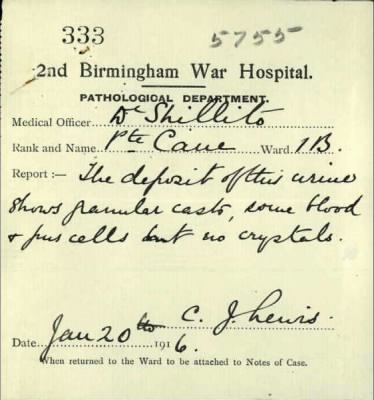 333 5755
2nd Birmingham War Hospital.
PATHOLOGICAL DEPARTMENT.
Medical Officer Dr Shillito
Rank and Name Pte Cane Ward 1B.
Report :— The deposit of this urine
shows granular casts, some blood
+ pus cells but no crystals.
C. J Lewis.
Date Jan 20th 1916.
When returned to the Ward to be attached to Notes of Case.